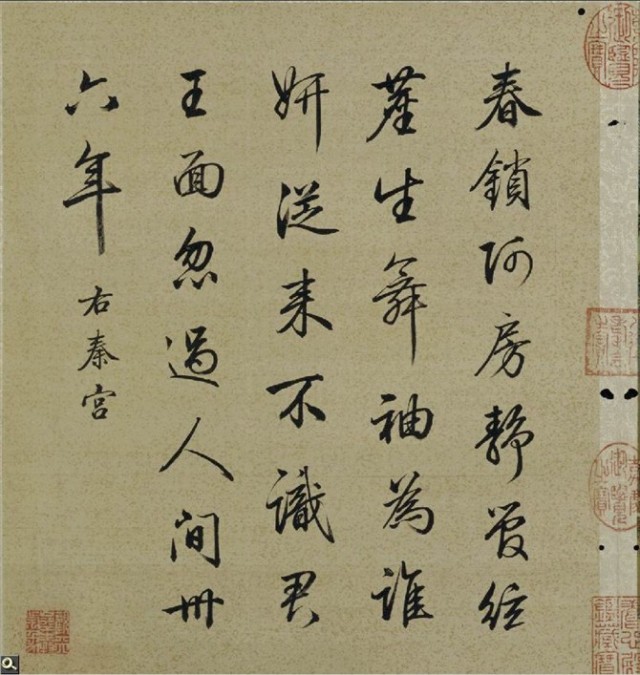 春鎖阿房靜管絃
塵生舞袖為誰
妍從來不識君
王面忽過人間卅
六年 右秦宮